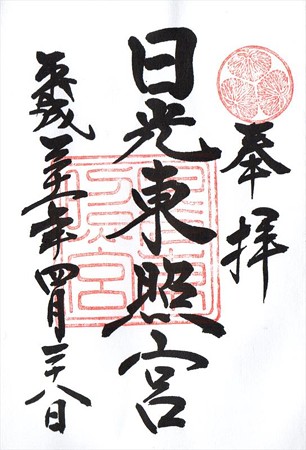 奉拝
日光東照宮
平成三十一年四月二十八日